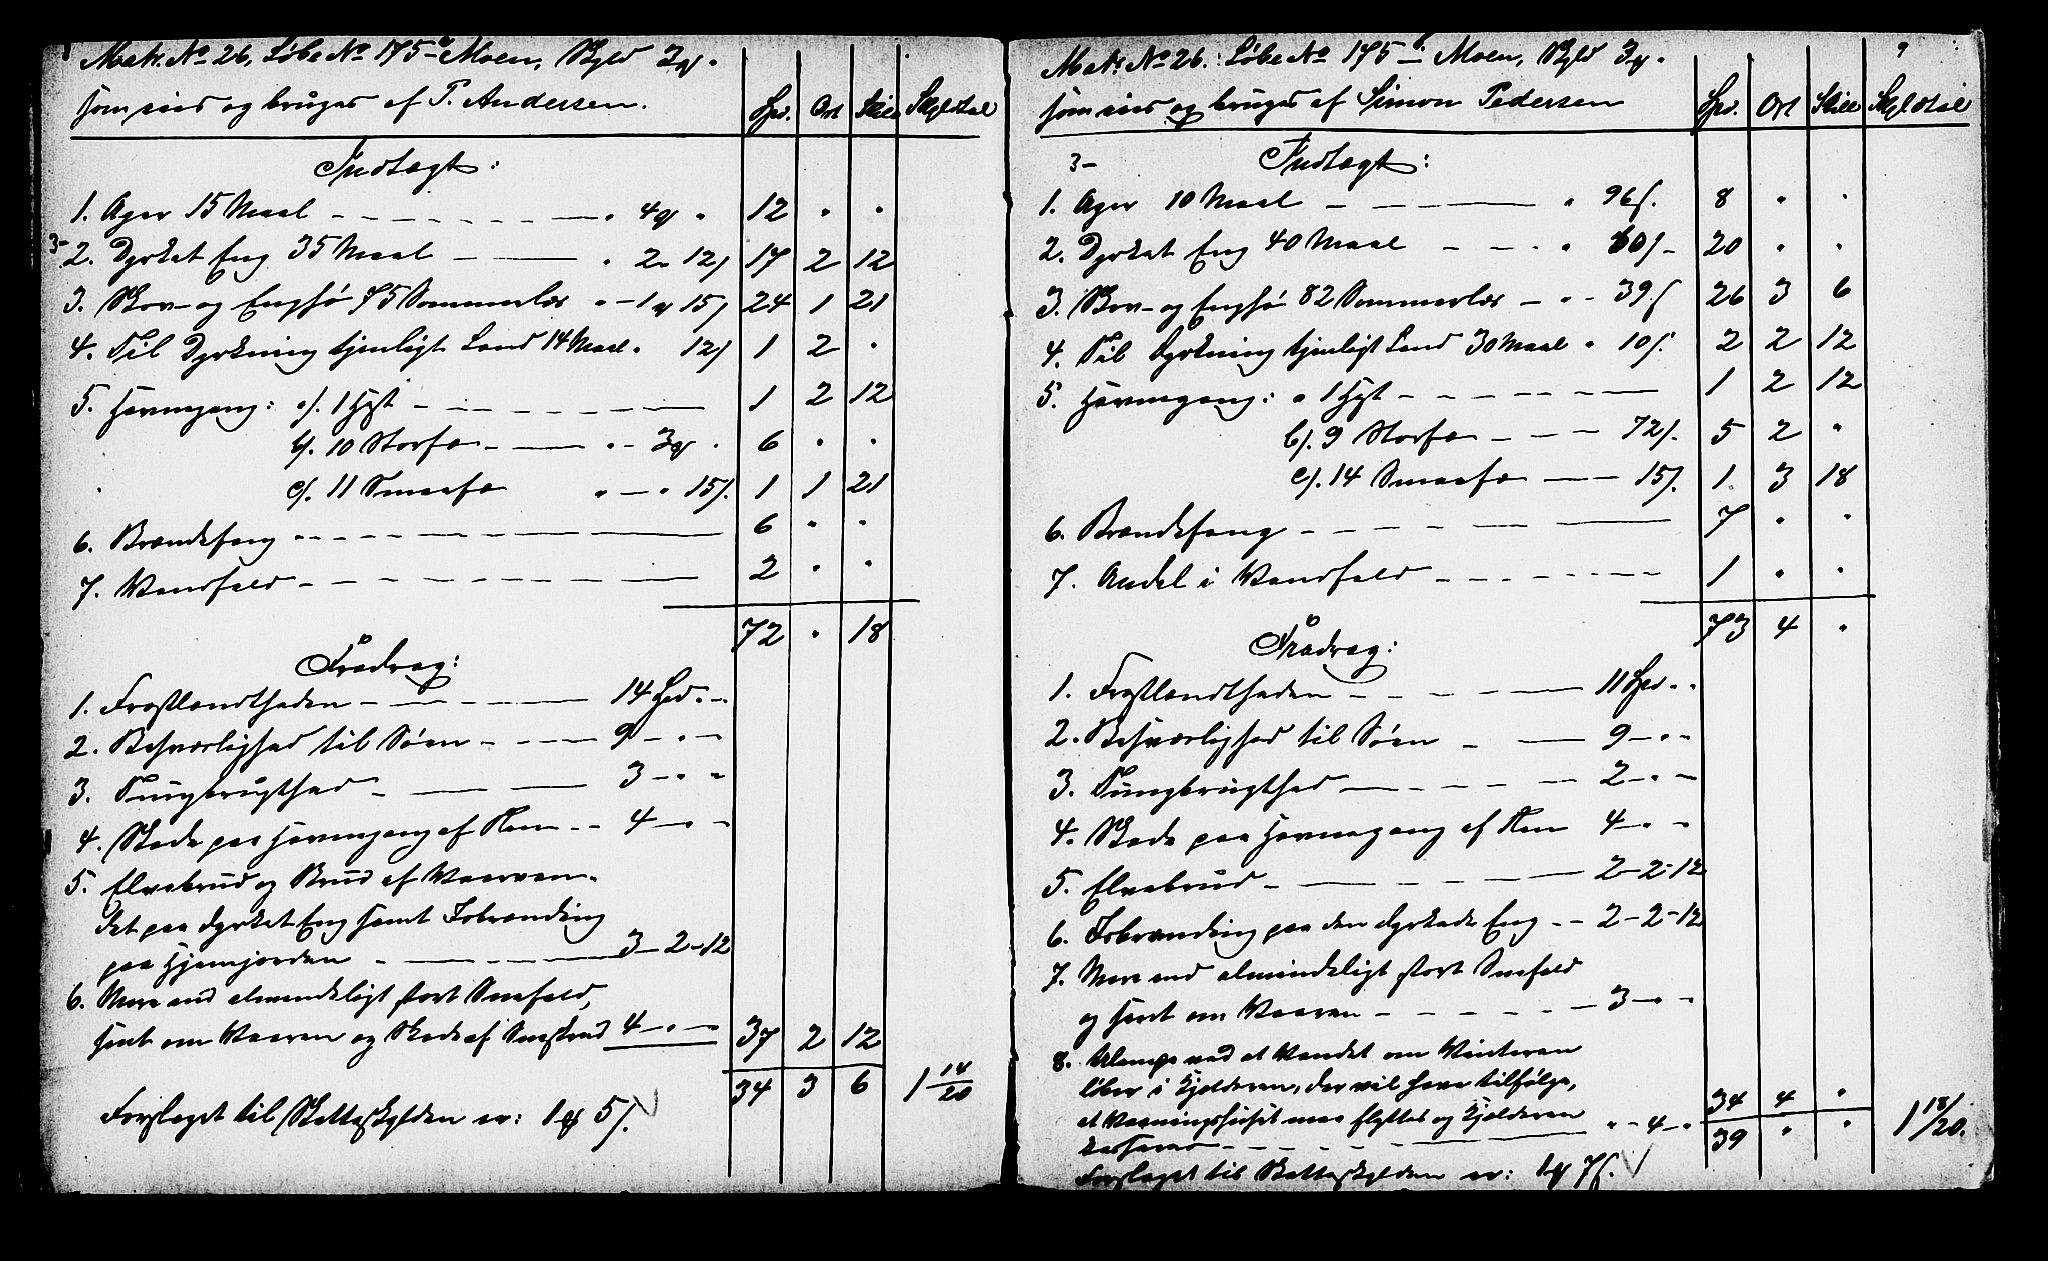 Matr. No 26, Løbe No 175 a Moen, Skyld 3 ort.
som eies og bruges af P. Andersen.
Spd. Ort Skill Skyldtal
Indtægt:
1. Ager 15 Maal - - - - " 4 ort " 12 " "
3- 2. Dyrket Eng 35 Maal - - - " 2 - 12/ 17 2 12
3. Skov- og Enghø 75 Sommerlæs " - 1 ort 15/ 24 1 21
4. Til Dyrkning tjenligt Land 14 Maal " 12/ 1 2 "
5. Havnegang: a/. 1 Hest - - - - 1 2 12
b/. 10 Storfæ - - - " - 3 ort " 6 " "
c/. 11 Smaafæ " - " 15/. 1 1 21
6. Brændefang - - - - 6 " "
7. Vandfald - - - - 2 " "
72 " 18
Fradrag:
1. Frostlændtheden - - - - 14 Spd. " -
2. Besværlighed til Søen - - - - 9 - " -
3. Tungbrugthed - - - 3 - " "
4. Skade paa Havnegang af Ren - - 4 - " -
5. Elvebrud og Brud af Vaarvan-
det paa dyrket Eng samt Isbrænding
paa Hjemjorden - - - 3 - 2 - 12
6. Mere end almindeligt stort Snefald,
sent om Vaaren og Skade af Sneskred 4 - " - 37 2 12
34 3 6 1 14/20
Forslaget til Skatteskylden er: 1 ort 5/.
9
Matr. No 26. Løbe No 175 b Moen, Skyld 3 ort.
som eies og bruges af Simon Pedersen
Spd. Ort Skill Skyldtal
3- Indtægt:
1. Ager 10 Maal - - - " 96/. 8 " "
2. Dyrket Eng 40 Maal - - - " 60/- 20 " "
3. Skov- og Enghø 82 Sommerlæs - " - 39/ 26 3 6
4. Til Dyrkning tjenligt Land 30 Maal " 10/. 2 2 12
5. Havnegang: a 1 Hest - - - - 1 2 12
b/. 9 Storfæ - - - 72/. 5 2 "
c/. 14 Smaafæ - - - 15/. 1 3 18
6. Brændefang - - - - 7 " "
7. Andel i Vandfald - - - - 1 " "
73 4 "
Fradrag:
1. Frostlændtheden - - - - 11 Spd " "
2. Besværlighed til Søen - - 9 - " "
3. Tungbrugthed - - - - 2 - " -
4. Skade paa Havnegang af Ren 4 - " -
5. Elvebrud - - - - 2 - 2 - 12
6. Isbrænding paa den dyrkede Eng - - 2 - 2 - 12
7. Mere end almindeligt stort Snefald
og sent om Vaaren - - - - 3 - " -
8. Ulempe ved at Vandet om Vinteren
løber i Kjelderen, der vil have tilfølge,
at Vaaningshuset maa flyttes og Kjelderen
- - - - " - 4 - " 34 4 "
39 " " 1 18/20.
Forslaget til Skatteskylden er: 1 ort 7/.